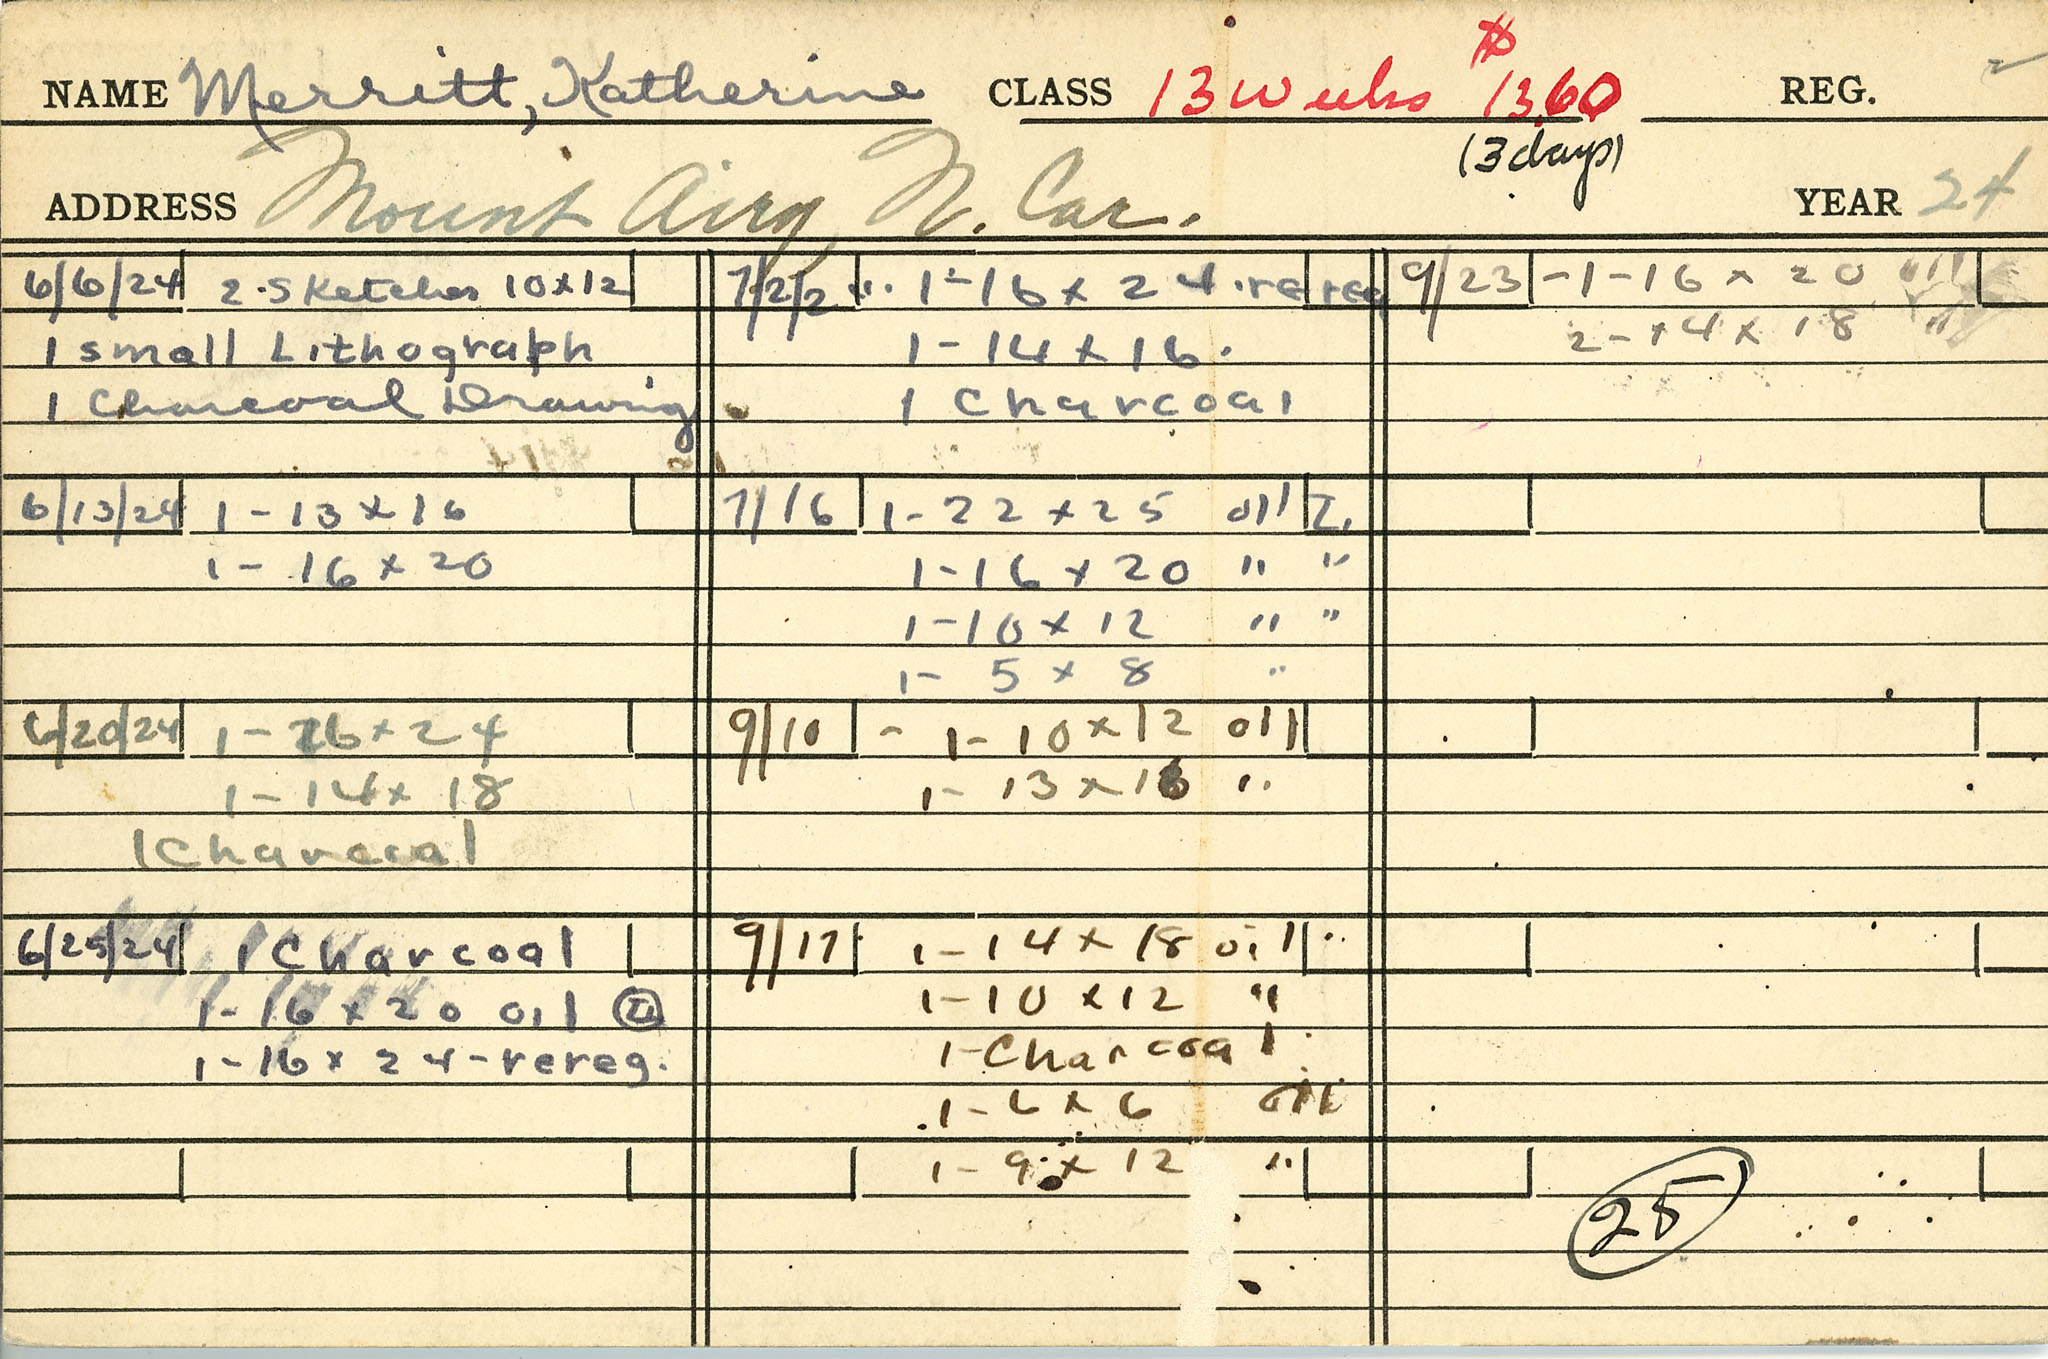 NAME Merritt, Katherine CLASS 13 Weeks $13.60 REG.
(3 days)
ADDRESS Mount Airy N. Car. YEAR 24
6/6/24 2-Sketches 10x12
1 small Lithograph
1 Charcoal Drawing
6/13/24 1-13x16
1-16x20
6/20/24 1-16x24
1-14x18
1 Charcoal
6/25/24 1 Charcoal
1-16x20 oil
1-16x24-rereg.
7/2/2 1-16x24.rereg
1-14x16.
1 Charcoal
7/16 1-22x25 oil I.
1-16x20 " "
1-10x12 " "
1-5x8 "
9/10 - 1-10x12 oil
1-13x16 "
9/17 1-14x18 oil
1-10x12 "
1-Charcoal
1-6x6 oil
1-9x12 "
9/23 -1-16x20 oil
2-14x18 "
25